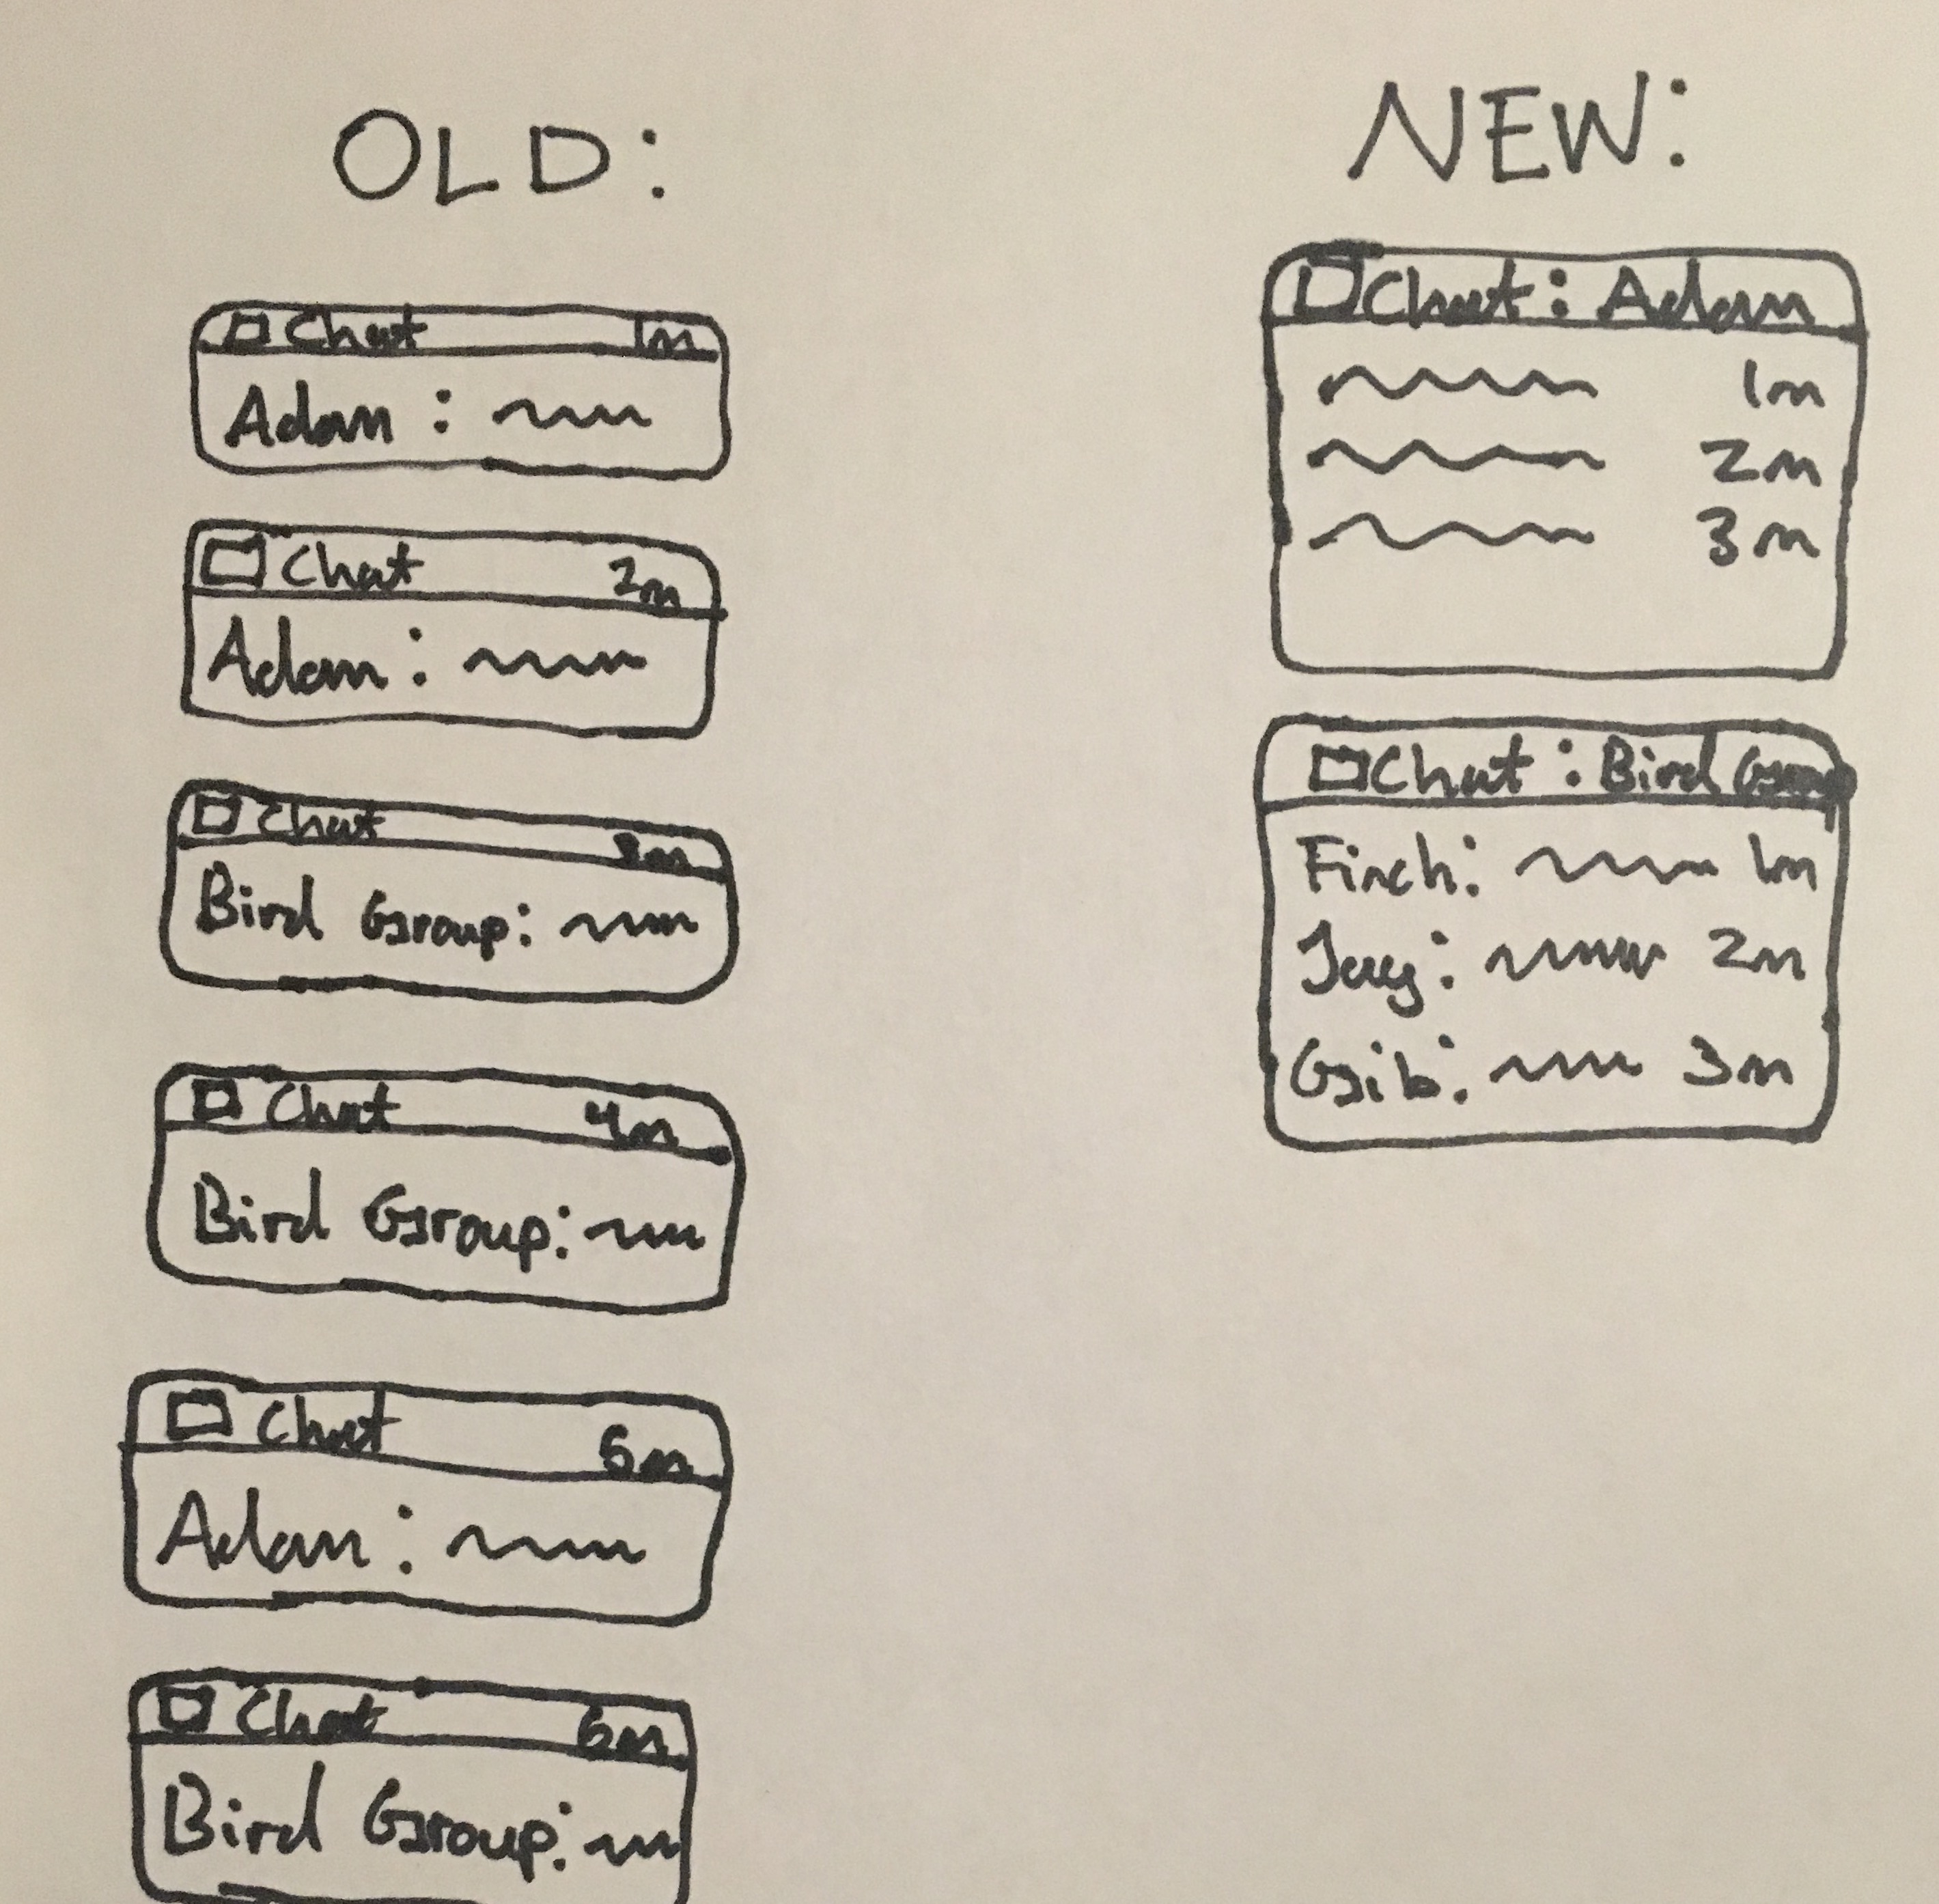 OLD:
Chat 1m
Adam:
Chat 2m
Adam:
Chat
Bird Group:
Chat 4m
Bird Group:
Chat 6m
Adam:
Chat 6m
Bird Group:
NEW:
Chat: Adam
1m
2m
3m
Chat: Bird Group
Finch: 1m
Jay: 2m
Grib: 3m